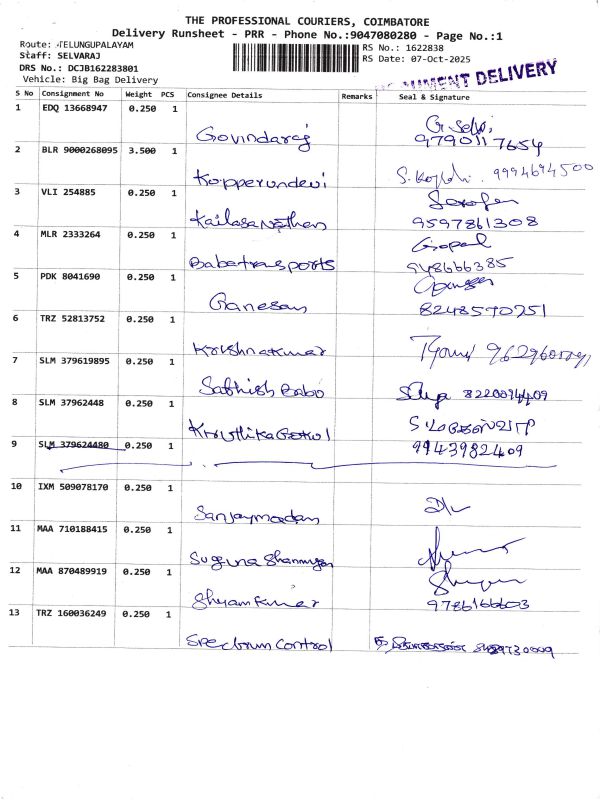 THE PROFESSIONAL COURIERS, COIMBATORE
Delivery Runsheet - PRR - Phone No.:9047080280 - Page No.:1
Route: TELUNGUPALAYAM RS No.: 1622838
Staff: SELVARAJ RS Date: 07-Oct-2025
DRS No.: DCJB162283801
Vehicle: Big Bag Delivery DELIVERY
S No Consignment No Weight PCS Consignee Details Remarks Seal & Signature
1 EDQ 13668947 0.250 1 Govindaraj G. Selvi
2 BLR 9000268095 3.500 1 Kopperundevi 9994694500
3 VLI 254885 0.250 1 Kailasanathan 9597861308
4 MLR 2333264 0.250 1 Babatrasports Gopal 948666385
5 PDK 8041690 0.250 1 Ganesan 8248590251
6 TRZ 52813752 0.250 1 Krishnakumar
7 SLM 379619895 0.250 1 Sathish Babo 8220094409
8 SLM 37962448 0.250 1 Kruthika Gokul 9943982409
9 SLM 379624480 0.250 1
10 IXM 509078170 0.250 1 Sanjaymadan
11 MAA 710188415 0.250 1 Suguna Shanmugam
12 MAA 870489919 0.250 1 Shyam Kumar 9786166603
13 TRZ 160036249 0.250 1 Spectrum Control